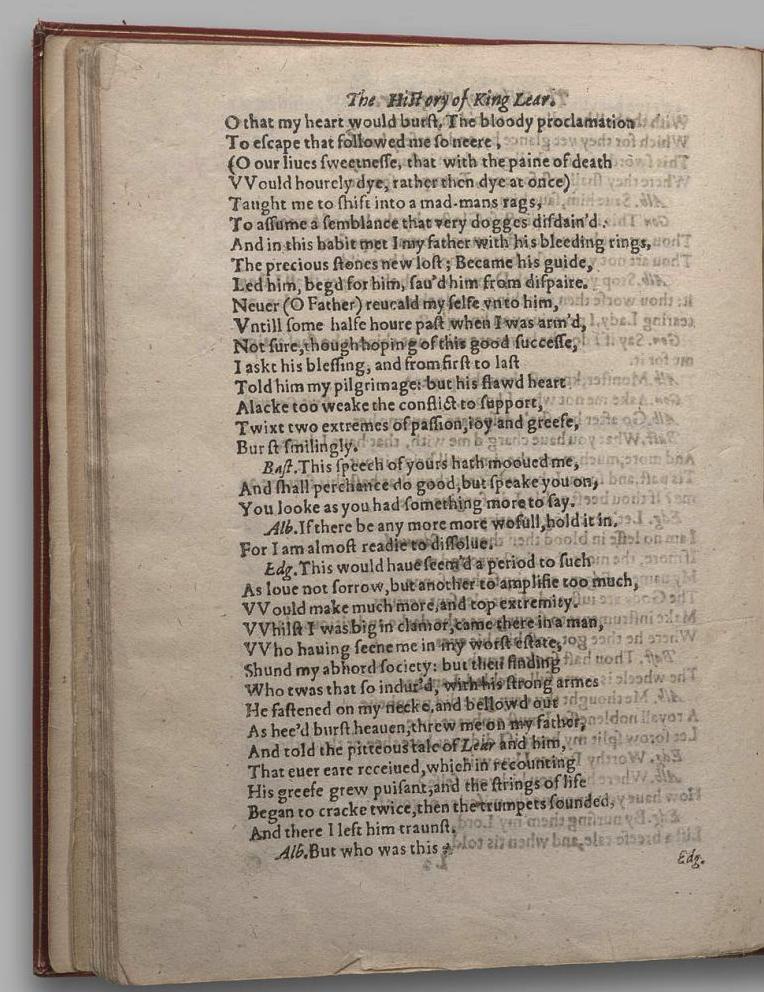 The Hiſtory of King Lear.
O that my heart would burſt. The bloody proclamation
To eſcape that followed me ſo neere,
(O our liues ſweetneſſe, that with the paine of death
VVould hourely dye, rather then dye at once)
Taught me to ſhift into a mad-mans rags,
To aſſume a ſemblance that very dogges diſdain'd.
And in this habit met I my father with his bleeding rings,
The precious ſtones new loſt; Became his guide,
Led him, begd for him, ſau'd him from diſpaire.
Neuer (O Father) reueald my ſelfe vnto him,
Vntill ſome halfe houre paſt when I was arm'd,
Not ſure, though hoping of this good ſucceſſe,
I askt his bleſſing, and from firſt to laſt
Told him my pilgrimage: but his flawd heart
Alacke too weake the conflict to ſupport,
Twixt two extremes of paſſion, ioy and greefe,
Burſt ſmilingly.
Baſt. This ſpeech of yours hath mooued me,
And ſhall perchance do good, but ſpeake you on,
You looke as you had ſomething more to ſay.
Alb. If there be any more more wofull, hold it in.
For I am almoſt readie to diſſolue.
Edg. This would haue ſeem'd a period to ſuch
As loue not ſorrow, but another to amplifie too much,
VVould make much more, and top extremity.
VVhilſt I was big in clamor, came there in a man,
VVho hauing ſeene me in my worſt eſtate,
Shund my abhord ſociety: but then finding
Who twas that ſo indur'd, with his ſtrong armes
He faſtened on my necke, and bellowd out
As hee'd burſt heauen, threw me on my father,
And told the pitteous tale of Lear and him,
That euer eare receiued, which in recounting
His greefe grew puiſant, and the ſtrings of life
Began to cracke twice, then the trumpets ſounded,
And there I left him traunſt.
Alb. But who was this?
Edg.